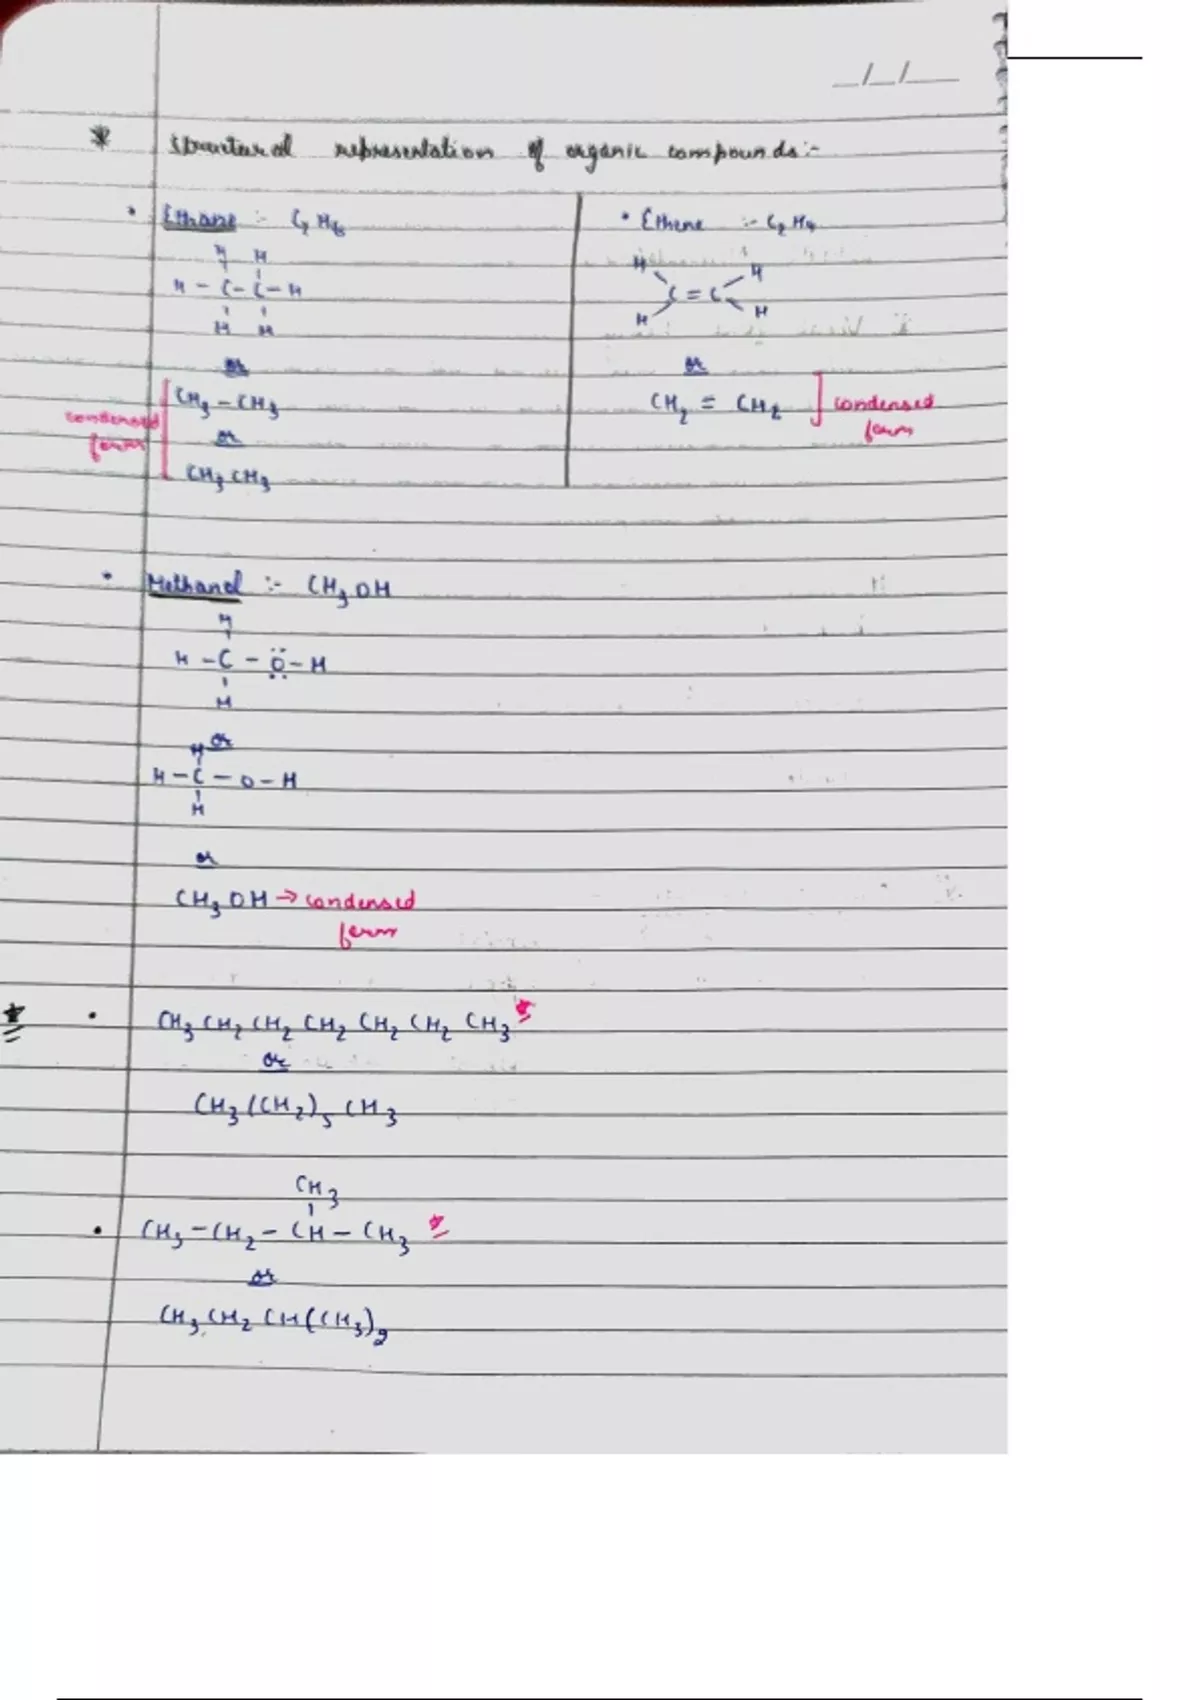 __/__/____
* Structural representation of organic compounds :-
• Ethane :- C₂H₆
H H
H - C - C - H
H H
or
CH₃ - CH₃
or
CH₃ CH₃
condensed
form
• Ethene :- C₂H₄
H H
C = C
H H
or
CH₂ = CH₂
condensed
form
• Methanol :- CH₃OH
H
H - C - Ö - H
H
or
H
H - C - O - H
H
or
CH₃OH → condensed
form
* • CH₃ CH₂ CH₂ CH₂ CH₂ CH₂ CH₃ *
or
CH₃(CH₂)₅ CH₃
CH₃
• CH₃ - CH₂ - CH - CH₃ *
or
CH₃ CH₂ CH(CH₃)₂